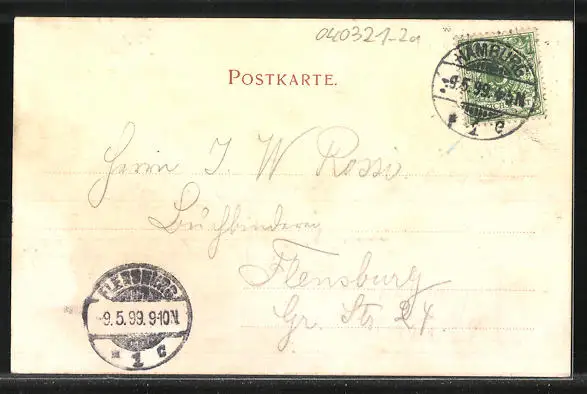 040321-2a
POSTKARTE.
HAMBURG
-9.5.99. 4-5N.
* 1 c
Herrn J. W Rossi.
Buchbinderei
Flensburg
Gr. Str 24.
FLENSBURG
-9.5.99. 9-10N.
* 1 c